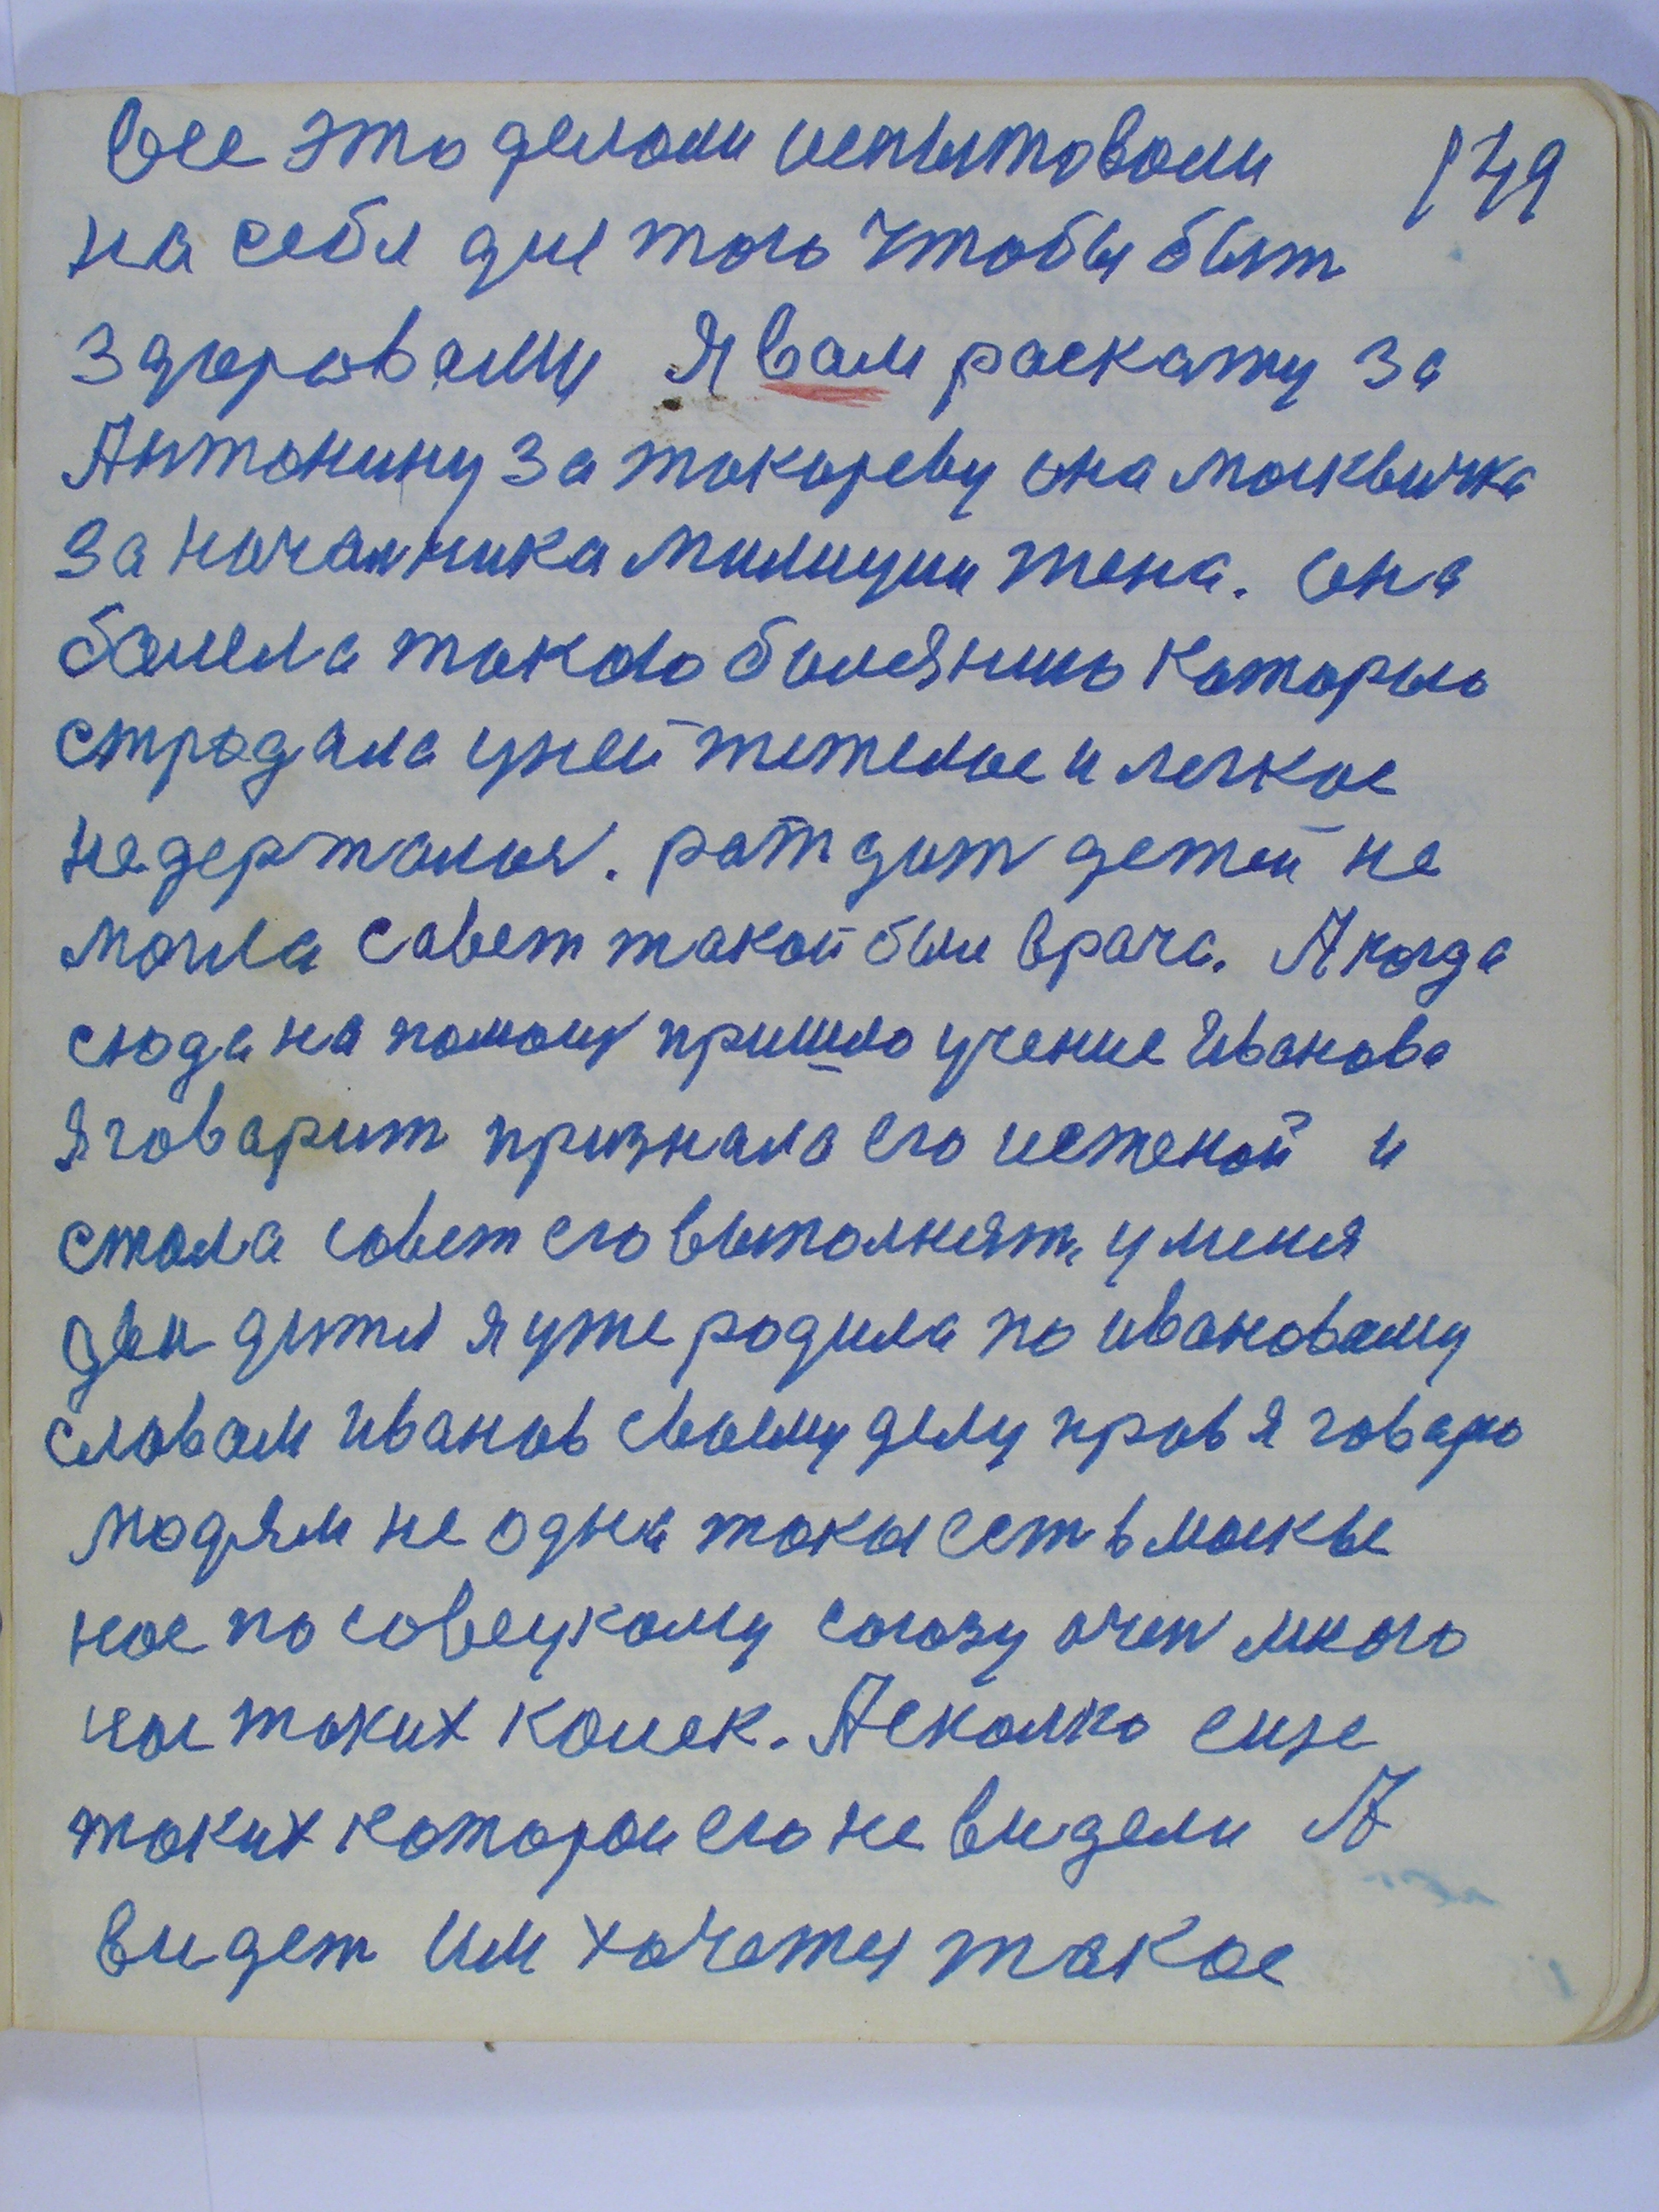 Все это делали испытовали 139
на себя для того чтобы быт
здоровами Я вам раскажу за
Антонину за токореву она москвичка
за начальника милиции жена. она
болела такою болезнию которыю
стродала у ней тежелое и легкое
недержалось. раждат детей не
могла совет такой был врача. А когда
сюда на помощ пришло учение Иванова
Я говарит признала его истеной и
стала совет его выполнят, у меня
два дитя я уже родила по ивановому
словам Иванов своему делу прав я говарю
людям не одна такая ест в москве
нае по совецкому союзу очен много
таких колек. А сколко еще
таких которои его не видели А
видет им хочетця такое